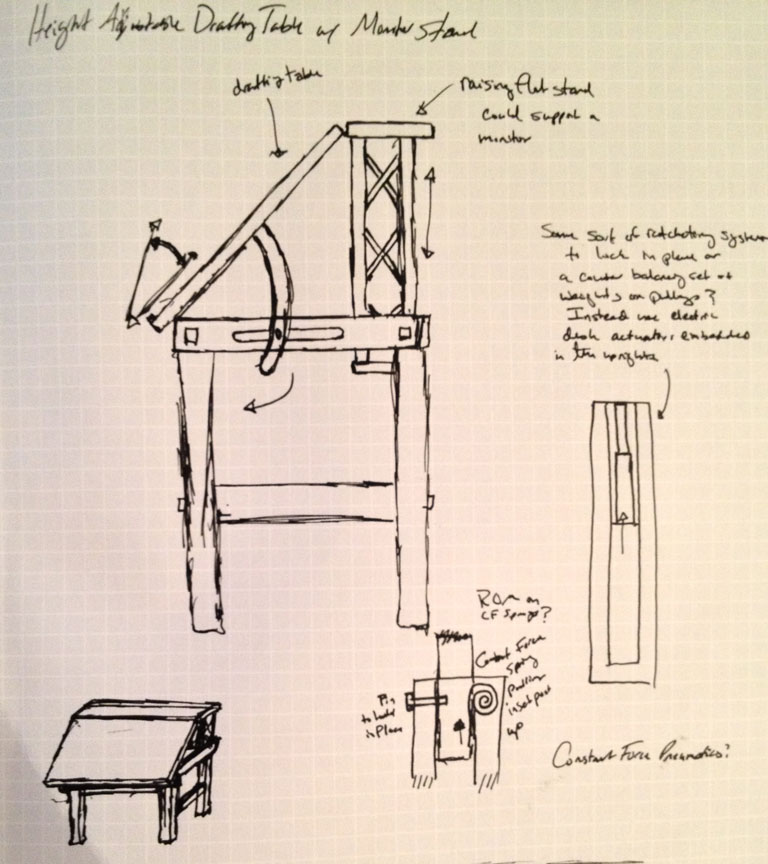 Height Adjustable Drafting Table w/ Monitor Stand
drafting table
raising flat stand
could support a
monitor
Some sort of ratcheting system
to lock in place or
a counter balancing set of
weights on pulleys?
Instead use electric
desk actuators embedded
in the uprights
Run on
CF springs?
Constant Force
Spring
pulling
inset post
up
Pin
to hold
in place
Constant Force Pneumatics?